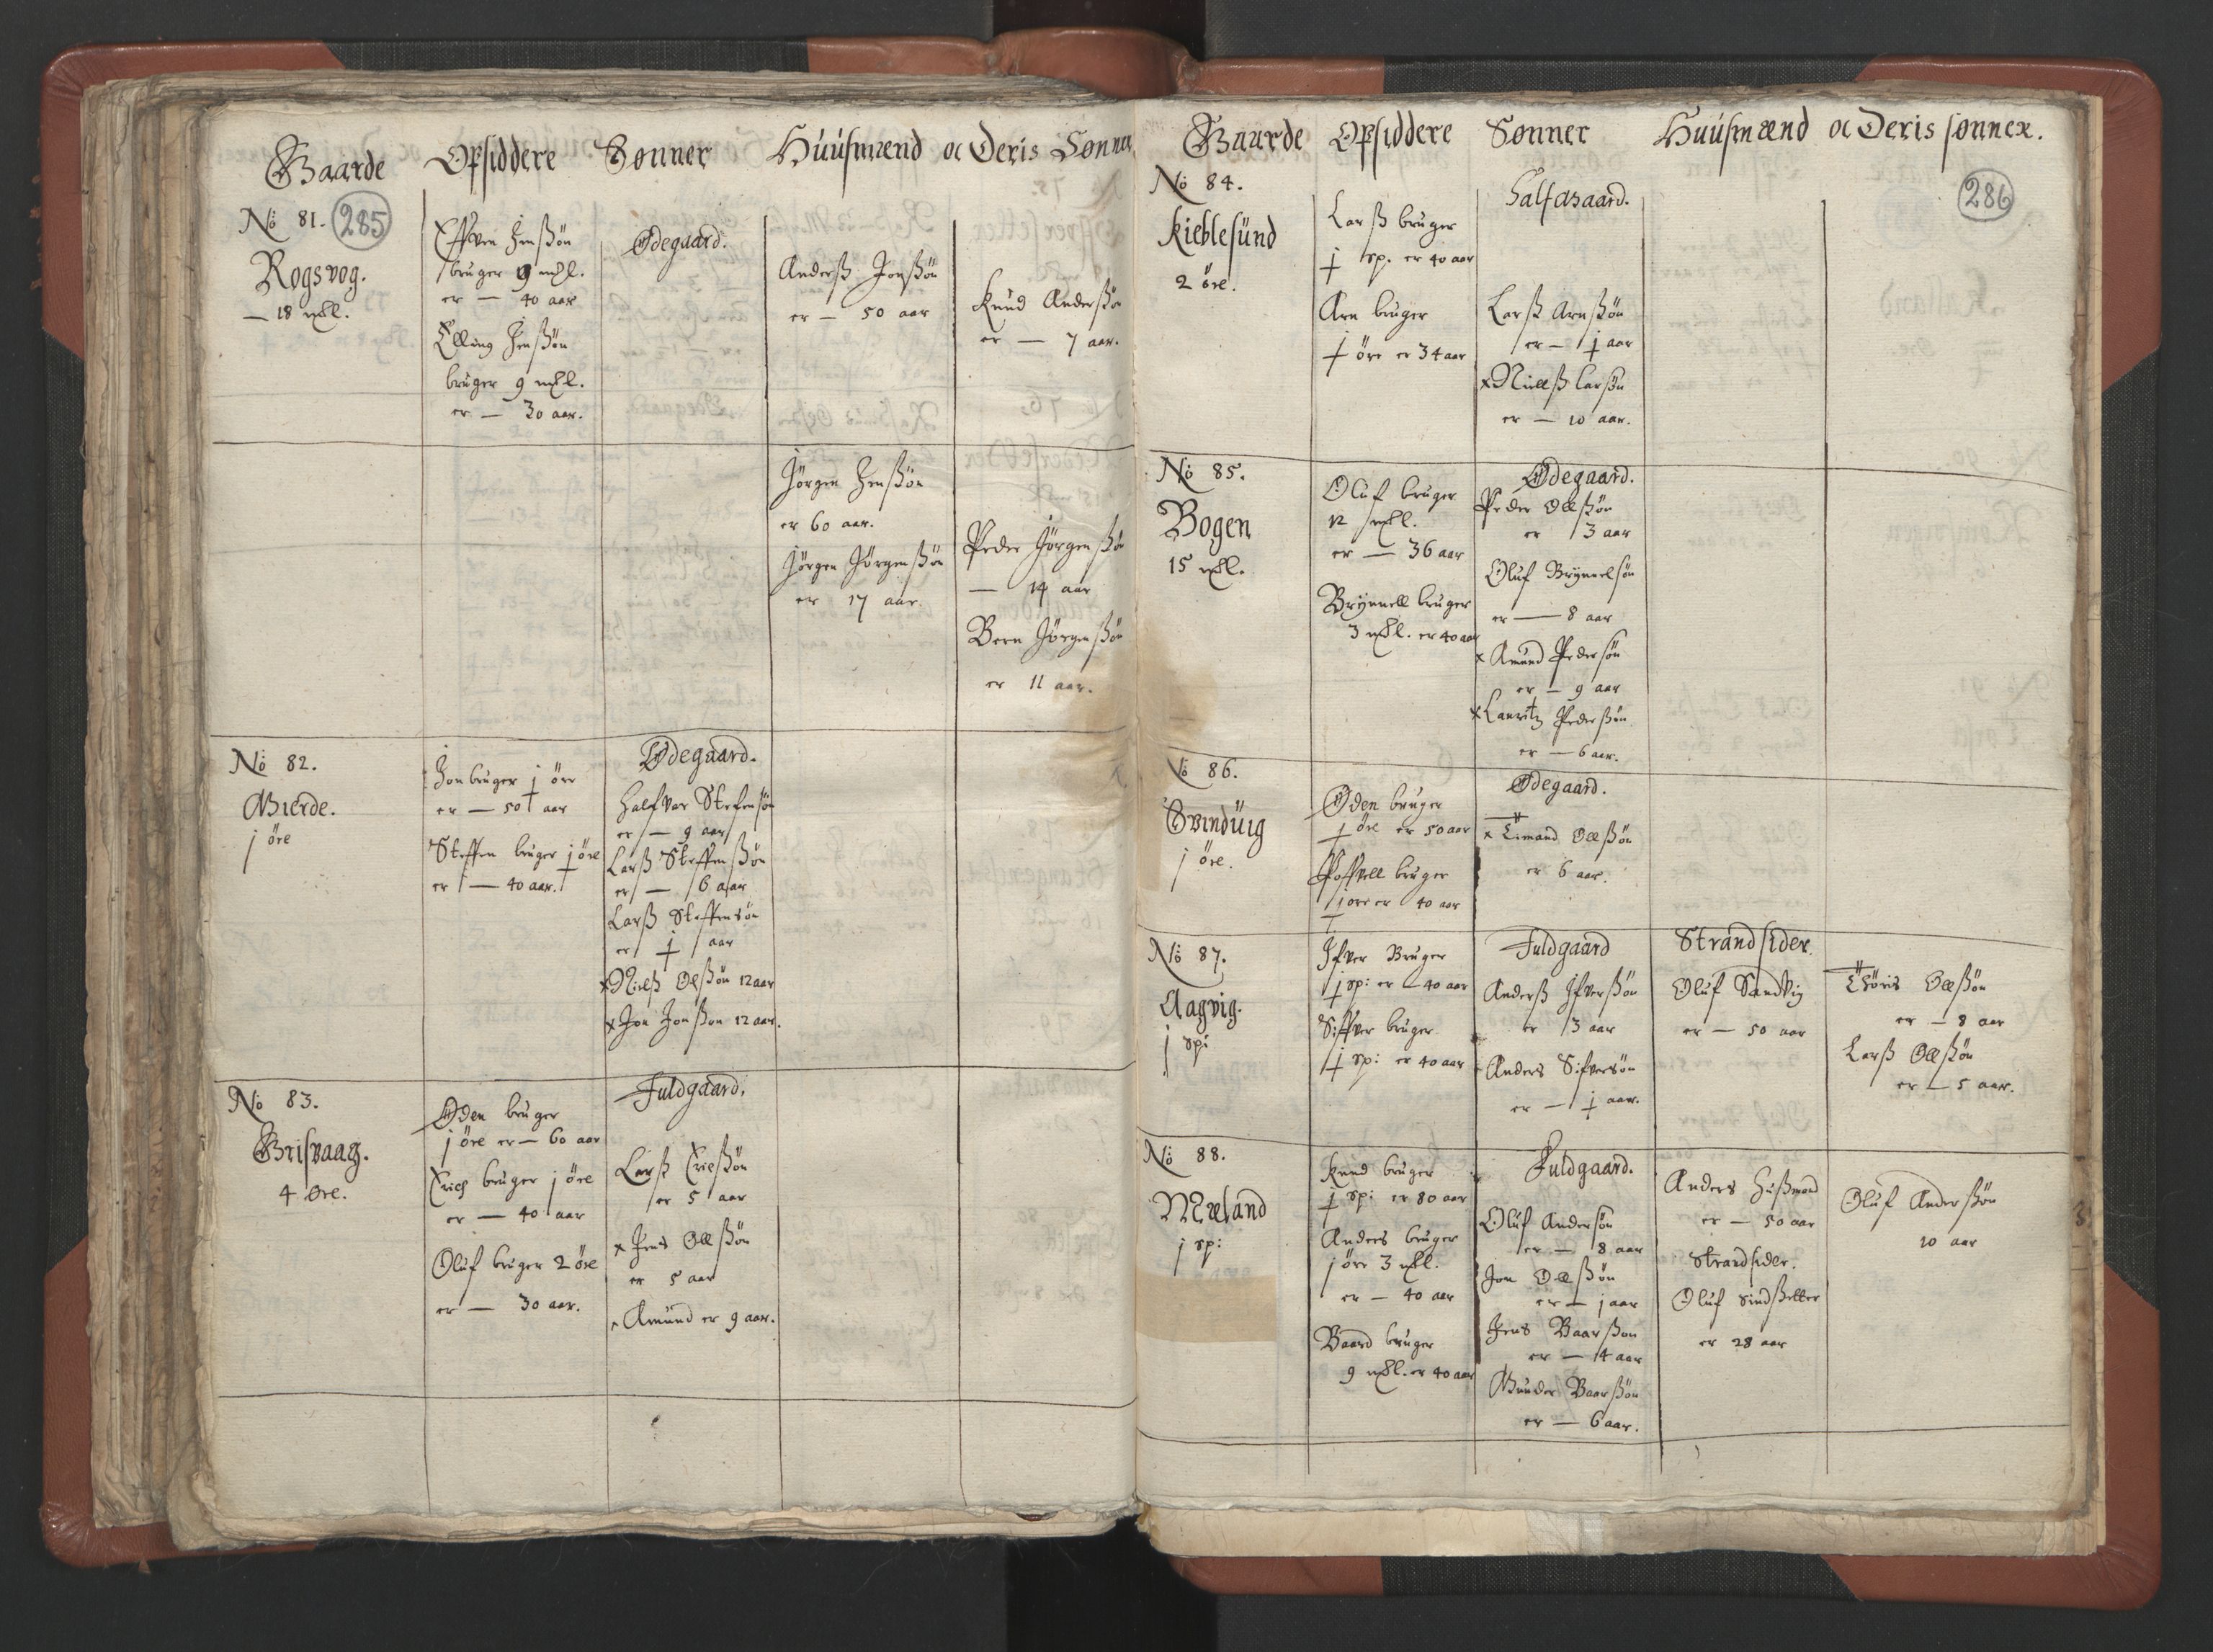 Gaarde Opsiddere Sønner Huusmænd oc Deris Sønner
No 81. 285
Rogsvog.
— 18 mkl.
Effven Jenßøn
bruger 9 mkl.
er — 40 aar
Elling Jenßøn
bruger 9 mkl.
er — 30 aar.
Ødegaard.
Anderß Jonßøn
er — 50 aar
Knud Anderßøn
er — 7 aar.
Jörgen Jenßøn
er 60 aar.
Jörgen Jörgenßøn
er 17 aar.
Peder Jörgenßøn
— 14 aar
Bern Jörgenßøn
er 11 aar.
No 82.
Gierde.
j öre
Jon bruger j öre
er — 50 aar
Steffen bruger j öre
er — 40 aar.
Ødegaard.
Halfvor Stefensøn
er — 9 aar
Larß Steffenßøn
er — 6 aar
Larß Steffensøn
er j aar
x Nielß Olßøn 12 aar
x Jon Jonßon 12 aar.
No 83.
Grisvaag.
4 öre.
Oden bruger
j öre er — 60 aar
Erich bruger j öre
er — 40 aar
Oluf bruger 2 öre
er — 30 aar.
Fuldgaard.
Larß Ericßøn
er 5 aar
x Jens Olßøn
er 5 aar
x Amund er 9 aar.
Gaarde Opsiddere Sønner Huusmænd oc Deris sønner.
286
No 84.
Kieblesund
2 öre.
Larß bruger
j sp. er 40 aar
Arn bruger
j öre er 34 aar
Halfgaard.
Larß Arnßøn
er — j aar
x Nielß Larsøn
er — 10 aar.
No 85.
Bogen
15 mkl.
Oluf bruger
12 mkl.
er — 36 aar
Brynnell bruger
3 mkl. er 40 aar
Ødegaard.
Peder Olßøn
er 3 aar
Oluf Brynnelsøn
er — 8 aar
x Amund Pedersøn
er — 9 aar
x Lauritz Pederßøn
er — 6 aar.
No 86.
Svinduig
j öre.
Oden bruger
j öre er 50 aar
Poffvell bruger
j öre er 40 aar
Ødegaard.
x Eimand Olßøn
er 6 aar.
No 87.
Aagvig.
j sp:
Ifver Bruger
j sp: er 40 aar
Siffver bruger
j sp: er 40 aar
Fuldgaard
Anderß Ifverßøn
er 3 aar
Anders Sifversøn
er — j aar.
Strandsider.
Oluf Sandvig
er — 50 aar
Thöris Olßøn
er — 8 aar
Larß Olßøn
er — 5 aar.
No 88.
Mæland
j sp:
Knud bruger
j sp: er 80 aar
Anders bruger
j öre 3 mkl.
er — 40 aar
Baard bruger
9 mkl. er 40 aar
Fuldgaard.
Oluf Andersøn
er — 8 aar
Jon Olßøn
er — j aar
Jens Baarßon
er — 14 aar
Gunder Baarßøn
er — 6 aar.
Anders Hußmand
er — 50 aar
Strandsider.
Oluf
er 28 aar
Oluf Anderßøn
10 aar